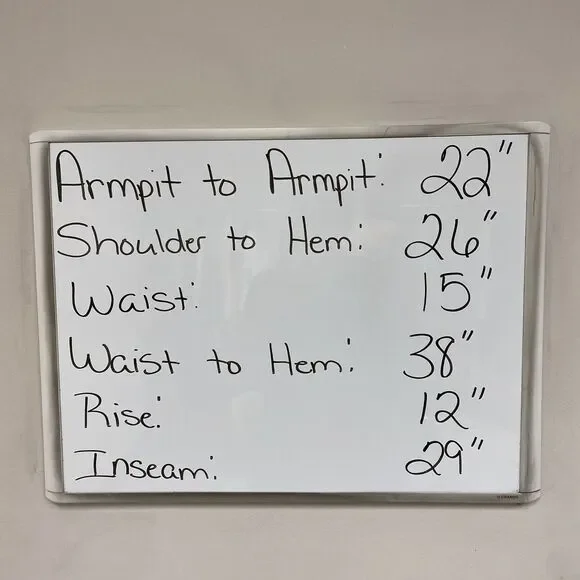 Armpit to Armpit: 22"
Shoulder to Hem: 26"
Waist: 15"
Waist to Hem: 38"
Rise: 12"
Inseam: 29"